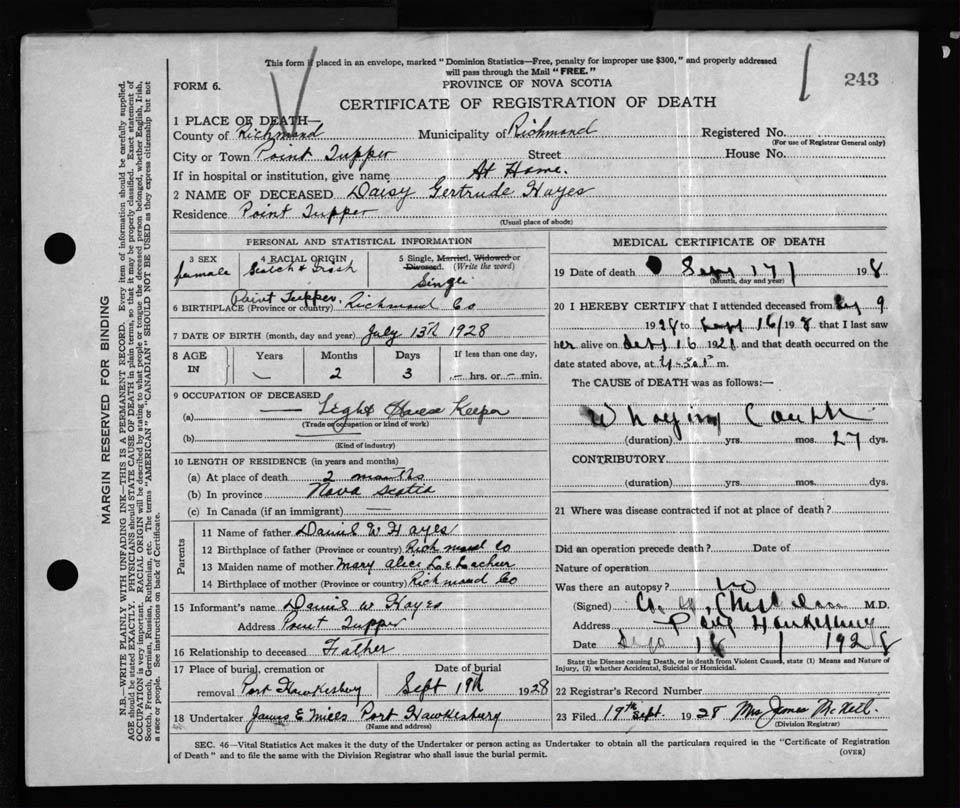 This form if placed in an envelope, marked "Dominion Statistics—Free, penalty for improper use $300," and properly addressed
will pass through the Mail "FREE."
243
FORM 6.
PROVINCE OF NOVA SCOTIA
CERTIFICATE OF REGISTRATION OF DEATH
1 PLACE OF DEATH—
County of Richmond Municipality of Richmond Registered No.
(For use of Registrar General only)
City or Town Point Tupper Street House No.
If in hospital or institution, give name At Home.
2 NAME OF DECEASED Daisy Gertrude Hayes
Residence Point Tupper
(Usual place of abode)
PERSONAL AND STATISTICAL INFORMATION
3 SEX 4 RACIAL ORIGIN 5 Single, Married, Widowed or
Divorced. (Write the word)
female Scotch & Irish Single
6 BIRTHPLACE (Province or country) Point Tupper, Richmond Co
7 DATE OF BIRTH (month, day and year) July 13th 1928
8 AGE IN Years Months Days If less than one day,
2 3 — hrs. or — min.
9 OCCUPATION OF DECEASED
(a) — Light House Keeper
(Trade or occupation or kind of work)
(b)
(Kind of industry)
10 LENGTH OF RESIDENCE (in years and months)
(a) At place of death 2 months
(b) In province Nova Scotia
(c) In Canada (if an immigrant) —
Parents
11 Name of father Daniel W Hayes
12 Birthplace of father (Province or country) Richmond Co
13 Maiden name of mother Mary Alice
14 Birthplace of mother (Province or country) Richmond Co
15 Informant's name Daniel W Hayes
Address Point Tupper
16 Relationship to deceased Father
17 Place of burial, cremation or Date of burial
removal Port Hawkesbury Sept 19th 1928
18 Undertaker James E Mills Port Hawkesbury
(Name and address)
MEDICAL CERTIFICATE OF DEATH
19 Date of death 17 1928
(Month, day and year)
20 I HEREBY CERTIFY that I attended deceased from 9
1928 to Sept 16/1928 that I last saw
her alive on 16 1928 and that death occurred on the
date stated above, at m.
The CAUSE of DEATH was as follows:—
Whooping Cough
(duration) yrs. mos. 27 dys.
CONTRIBUTORY
(duration) yrs. mos. dys.
21 Where was disease contracted if not at place of death?
Did an operation precede death? Date of
Nature of operation
Was there an autopsy? no
(Signed) M.D.
Address Port Hawkesbury
Date 18 1928
State the Disease causing Death, or in death from Violent Causes, state (1) Means and Nature of
Injury, (2) whether Accidental, Suicidal or Homicidal.
22 Registrar's Record Number
23 Filed 19th Sept. 1928 Mrs James McNeil.
(Division Registrar)
SEC. 46—Vital Statistics Act makes it the duty of the Undertaker or person acting as Undertaker to obtain all the particulars required in the "Certificate of Registration
of Death" and to file the same with the Division Registrar who shall issue the burial permit.
(OVER)
MARGIN RESERVED FOR BINDING
N.B.—WRITE PLAINLY WITH UNFADING INK—THIS IS A PERMANENT RECORD. Every item of information should be carefully supplied.
AGE should be stated EXACTLY. PHYSICIANS should STATE CAUSE OF DEATH in plain terms, so that it may be properly classified. Exact statement of
OCCUPATION is very important. RACIAL ORIGIN will be described by stating to what people or tongue the deceased person belonged, whether English, Irish,
Scotch, French, German, Russian, Ruthenian, etc. The terms "AMERICAN" or "CANADIAN" SHOULD NOT BE USED as they express citizenship but not
a race or people. See instructions on back of Certificate.